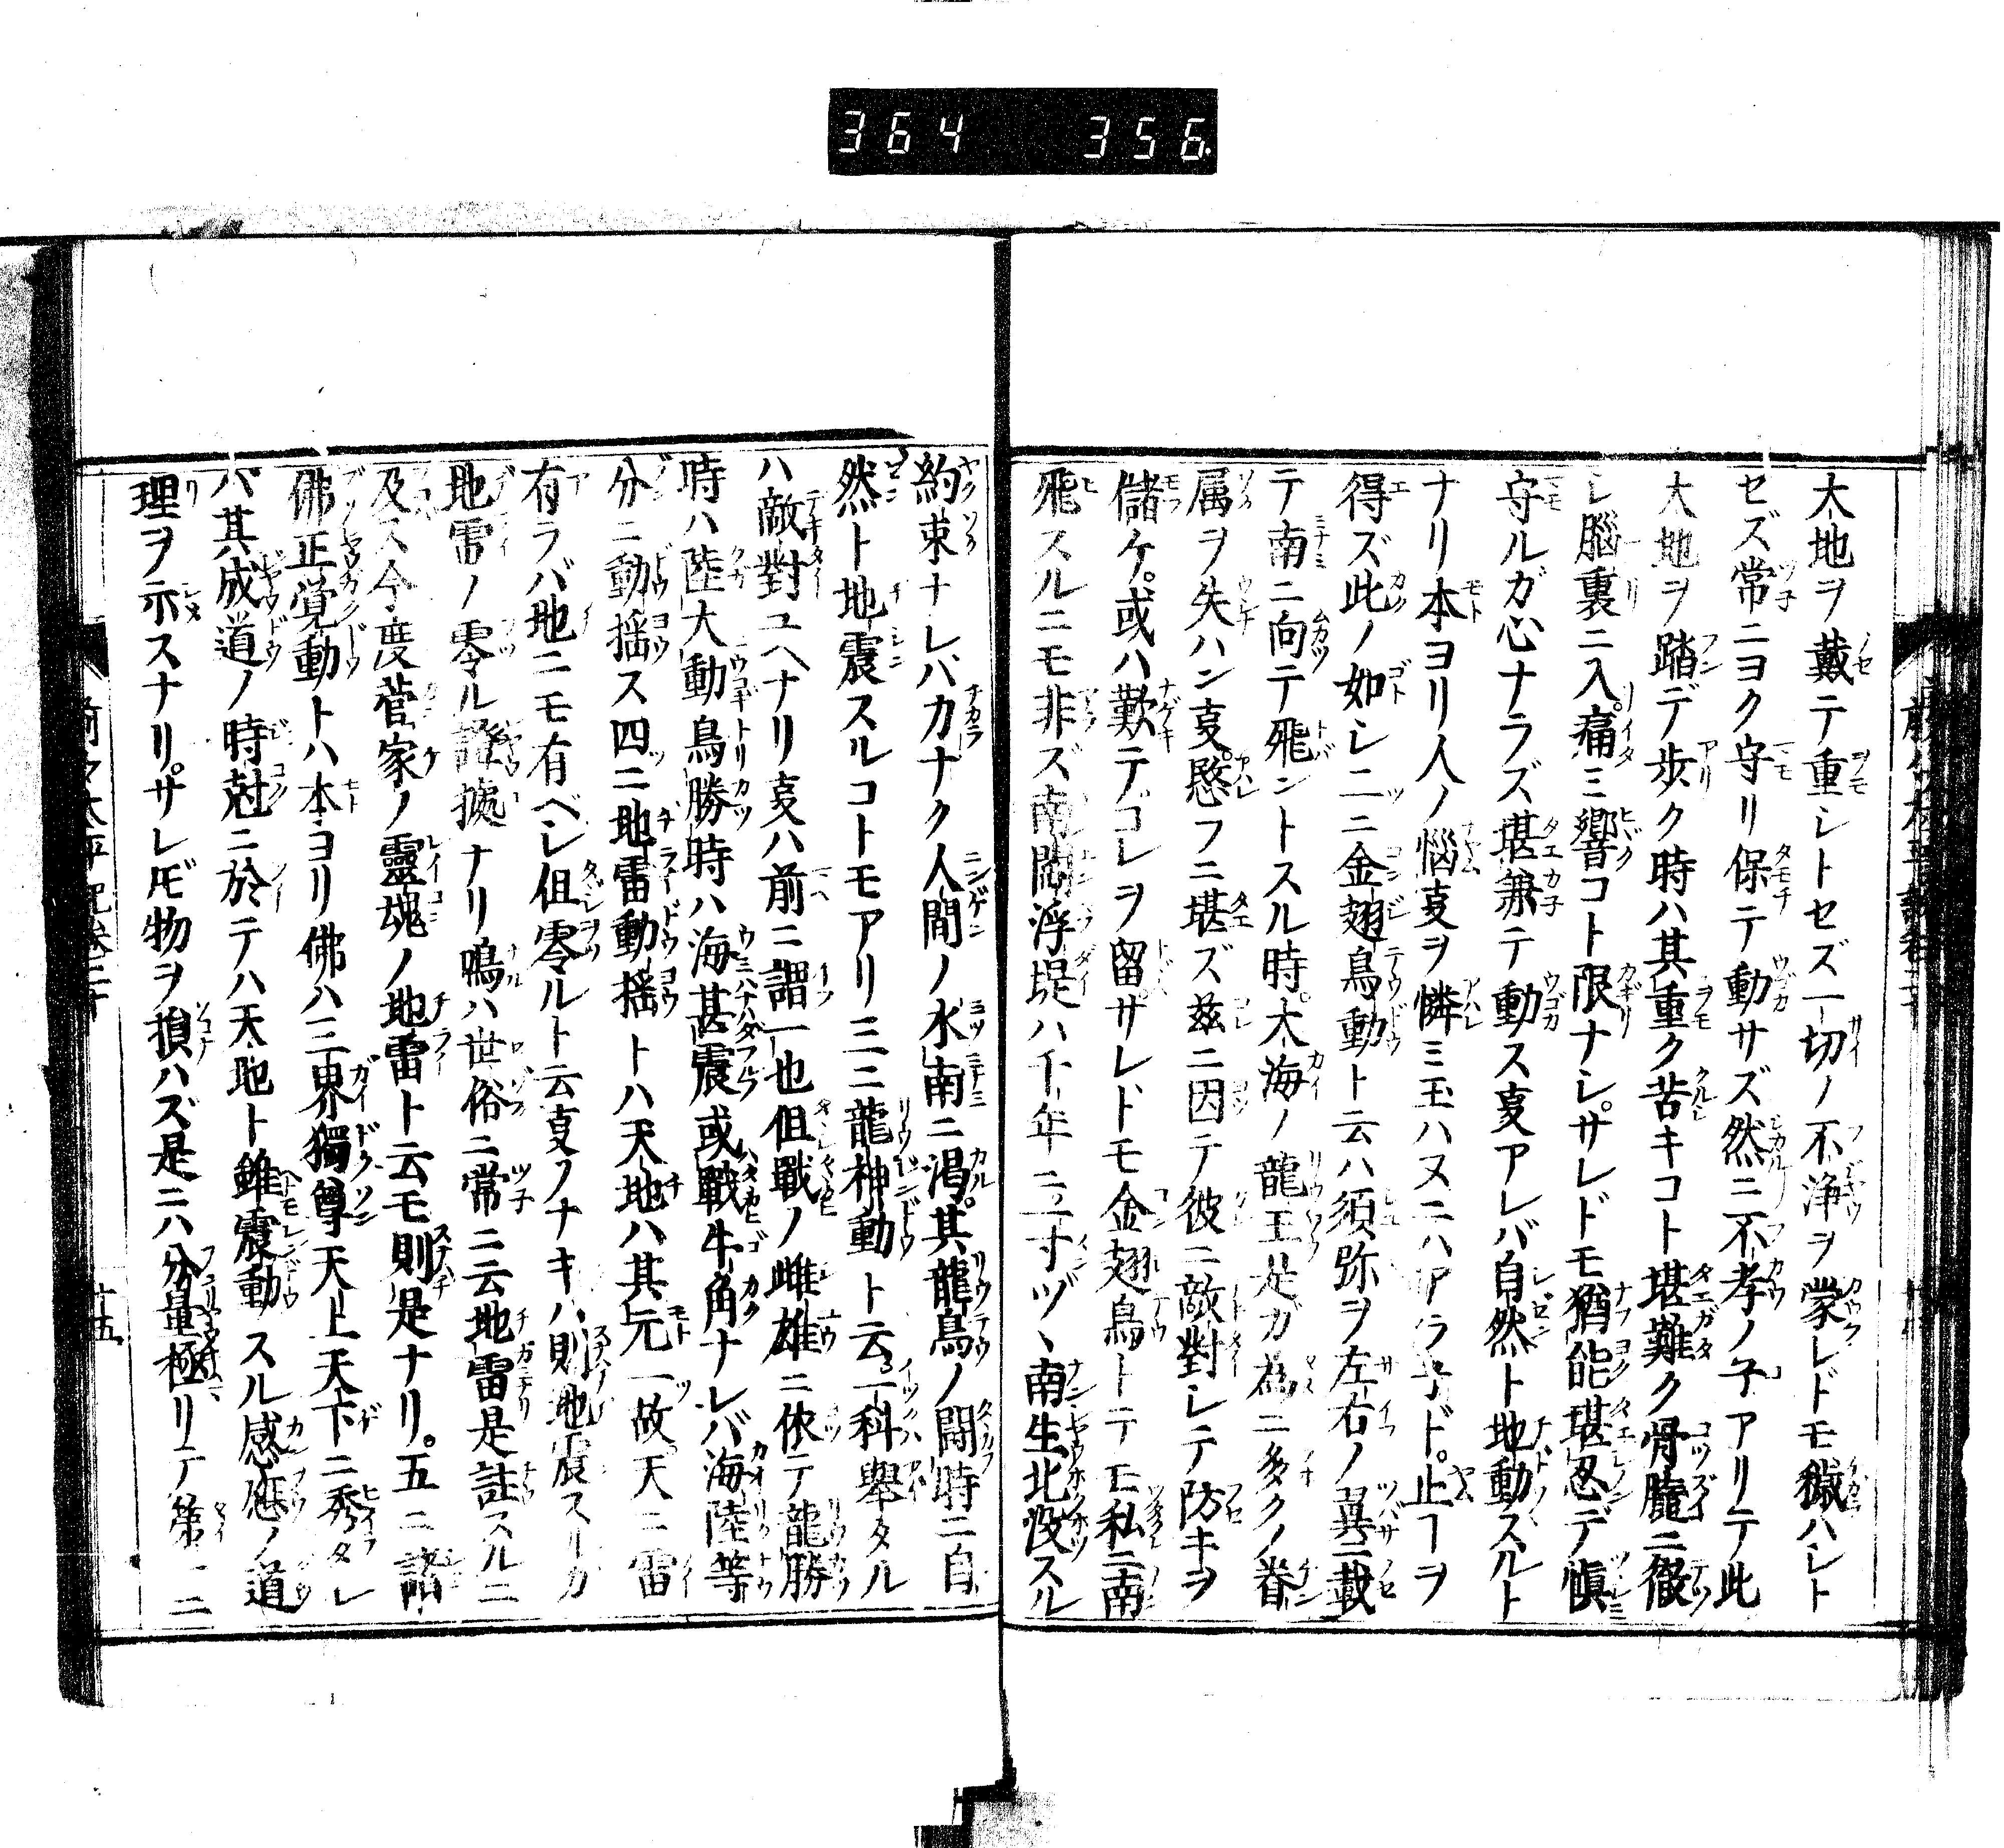 364 356
大地ヲ戴テ重シトセズ一切ノ不浄ヲ蒙レドモ穢ハシト
セズ常ニヨク守リ保テ動サズ然ニ不孝ノ子アリテ此
大地ヲ踏デ歩ク時ハ其重ク苦キコト堪難ク骨髓ニ徹
シ腦裏ニ入。痛ミ響コト限ナシ。サレドモ猶能堪忍デ愼
守ルガ心ナラズ堪兼テ動ス叓アレバ自然ト地動スルト
ナリ本ヨリ人ノ惱叓ヲ憐ミ玉ハヌニハアラ子ド。止ーヲ
得ズ此ノ如シ二ニ金翅鳥動ト云ハ須弥ヲ左右ノ翼ニ載
テ南ニ向テ飛ントスル時。大海ノ龍王是ガ為ニ多クノ眷
属ヲ失ハン叓。愍フニ堪ズ茲ニ因テ彼ニ敵對シテ防キヲ
儲ケ。或ハ歎テコレヲ留サレドモ金翅鳥トテモ私ニ南
飛スルニモ非ズ南閻浮堤ハ千年ニ一寸ヅヽ南生北没スル
約束ナレバカナク人間ノ水南ニ渇。其龍鳥ノ闘時ニ自
然ト地震スルコトモアリ三ニ龍神動ト云一科舉タル
ハ敵對ユヘナリ叓ハ前ニ謂一也但戰ノ雌雄ニ依テ龍勝
時ハ陸大動鳥勝時ハ海甚震或戰牛角ナレバ海陸等
分ニ動揺ス四ニ地雷動揺トハ天地ハ其元一故天ニ雷
有ラバ地ニモ有ベシ但零ルト云叓ノナキハ則地震スーカ
地雷ノ零ル證據ナリ鳴ハ世俗ニ常ニ云地雷是註スルニ
及ス今度菅家ノ靈魂ノ地雷ト云モ則是ナリ。五ニ諸
佛正覚動トハ本ヨリ佛ハ三界獨尊天上天下ニ秀タレ
バ其成道ノ時尅ニ於テハ天地ト雖震動スル感應ノ道
理ヲ示スナリ。サレ𪜈物ヲ損ハズ是ニハ分量極リテ第一ニ